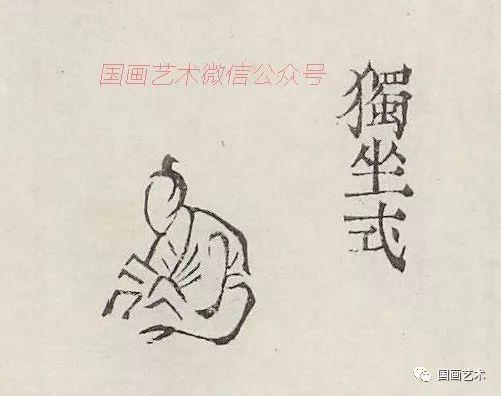 国画艺术微信公众号
獨坐式
国画艺术